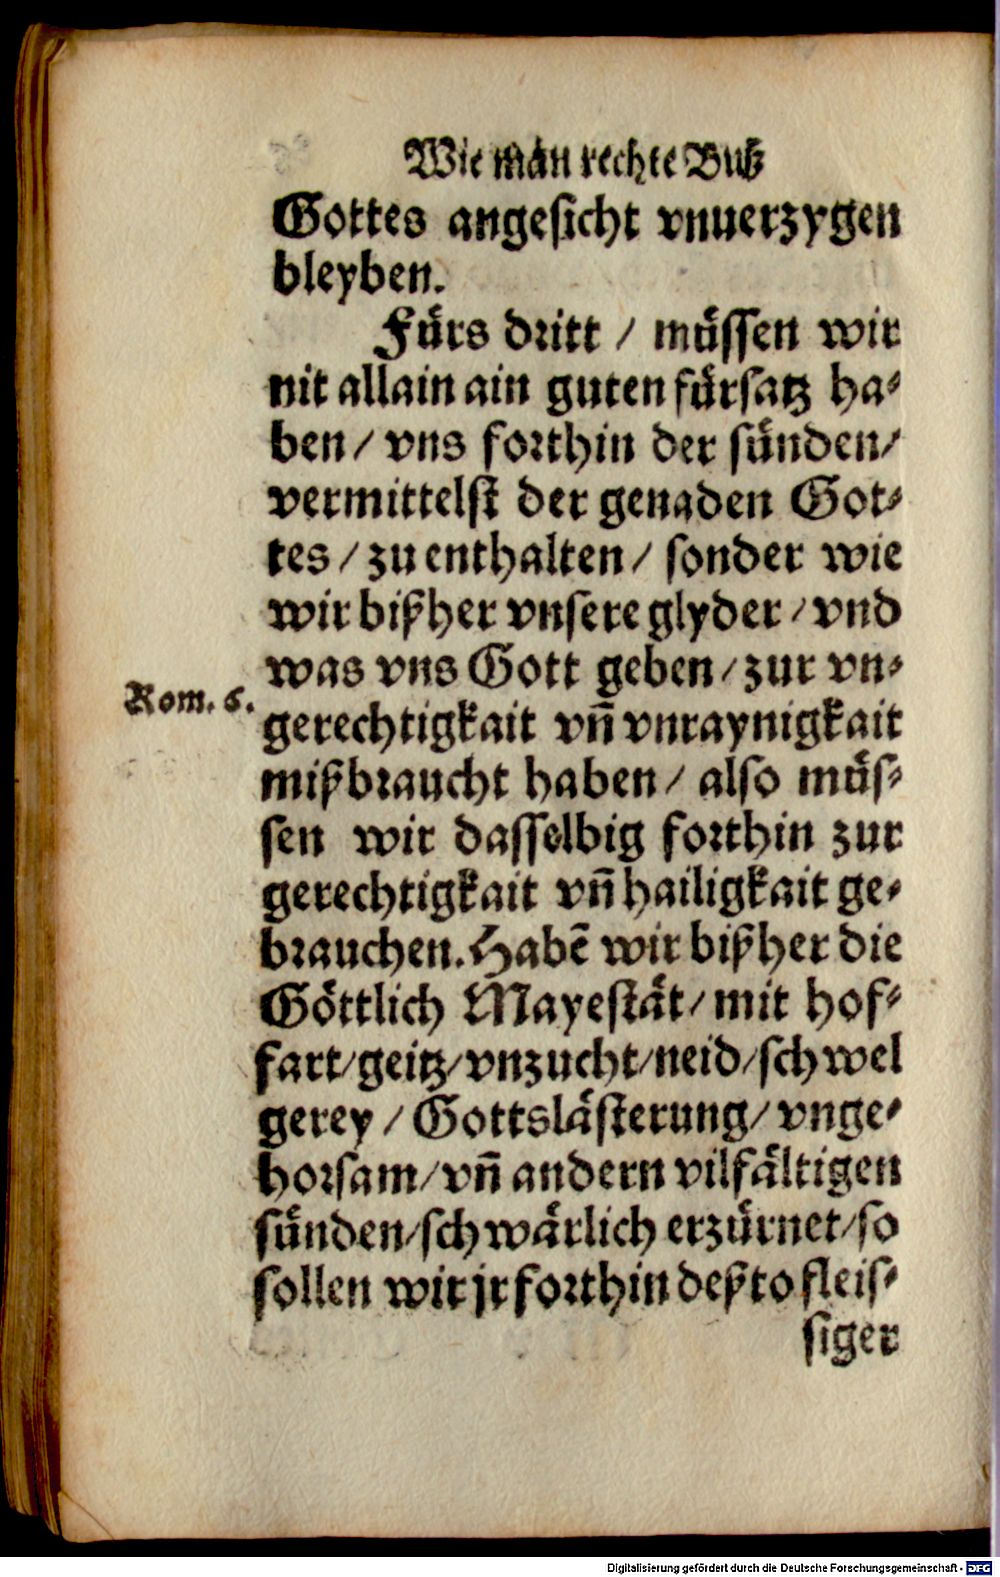 Wie man rechte Buß
Gottes angesicht vnuerzygen
bleyben.
Fürs dritt / müssen wir
nit allain ain guten fürsatz ha-
ben / vns forthin der sünden /
vermittelst der genaden Got-
tes / zu enthalten / sonder wie
wir bißher vnsere glyder / vnd
was vns Gott geben / zur vn-
Rom. 6.
gerechtigkait vn̄ vnraynigkait
mißbraucht haben / also müs-
sen wir dasselbig forthin zur
gerechtigkait vn̄ hailigkait ge-
brauchen. Habē wir bißher die
Göttlich Mayestät / mit hof-
fart / geitz / vnzucht / neid / schwel
gerey / Gottslästerung / vnge-
horsam / vn̄ andern vilfältigen
sünden / schwärlich erzürnet / so
sollen wir jr forthin deßto fleis-
siger
Digitalisierung gefördert durch die Deutsche Forschungsgemeinschaft - DFG